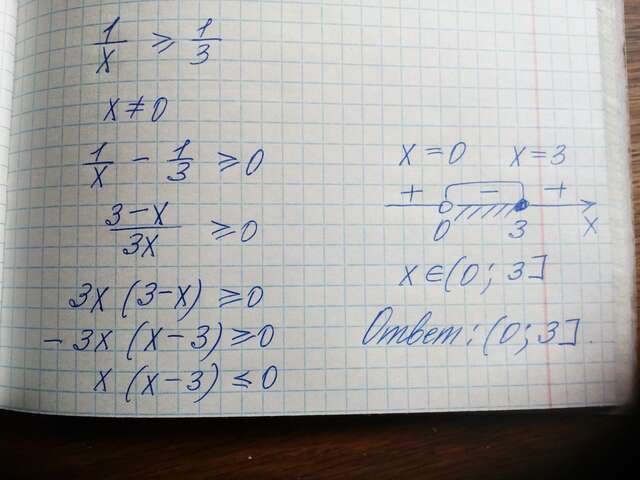 1/x ≥ 1/3
x ≠ 0
1/x − 1/3 ≥ 0
3−x/3x ≥ 0
3x (3−x) ≥ 0
− 3x (x−3) ≥ 0
x (x−3) ≤ 0
x = 0 x = 3
+ − +
0 3 x
x ∈ (0; 3]
Ответ: (0; 3].